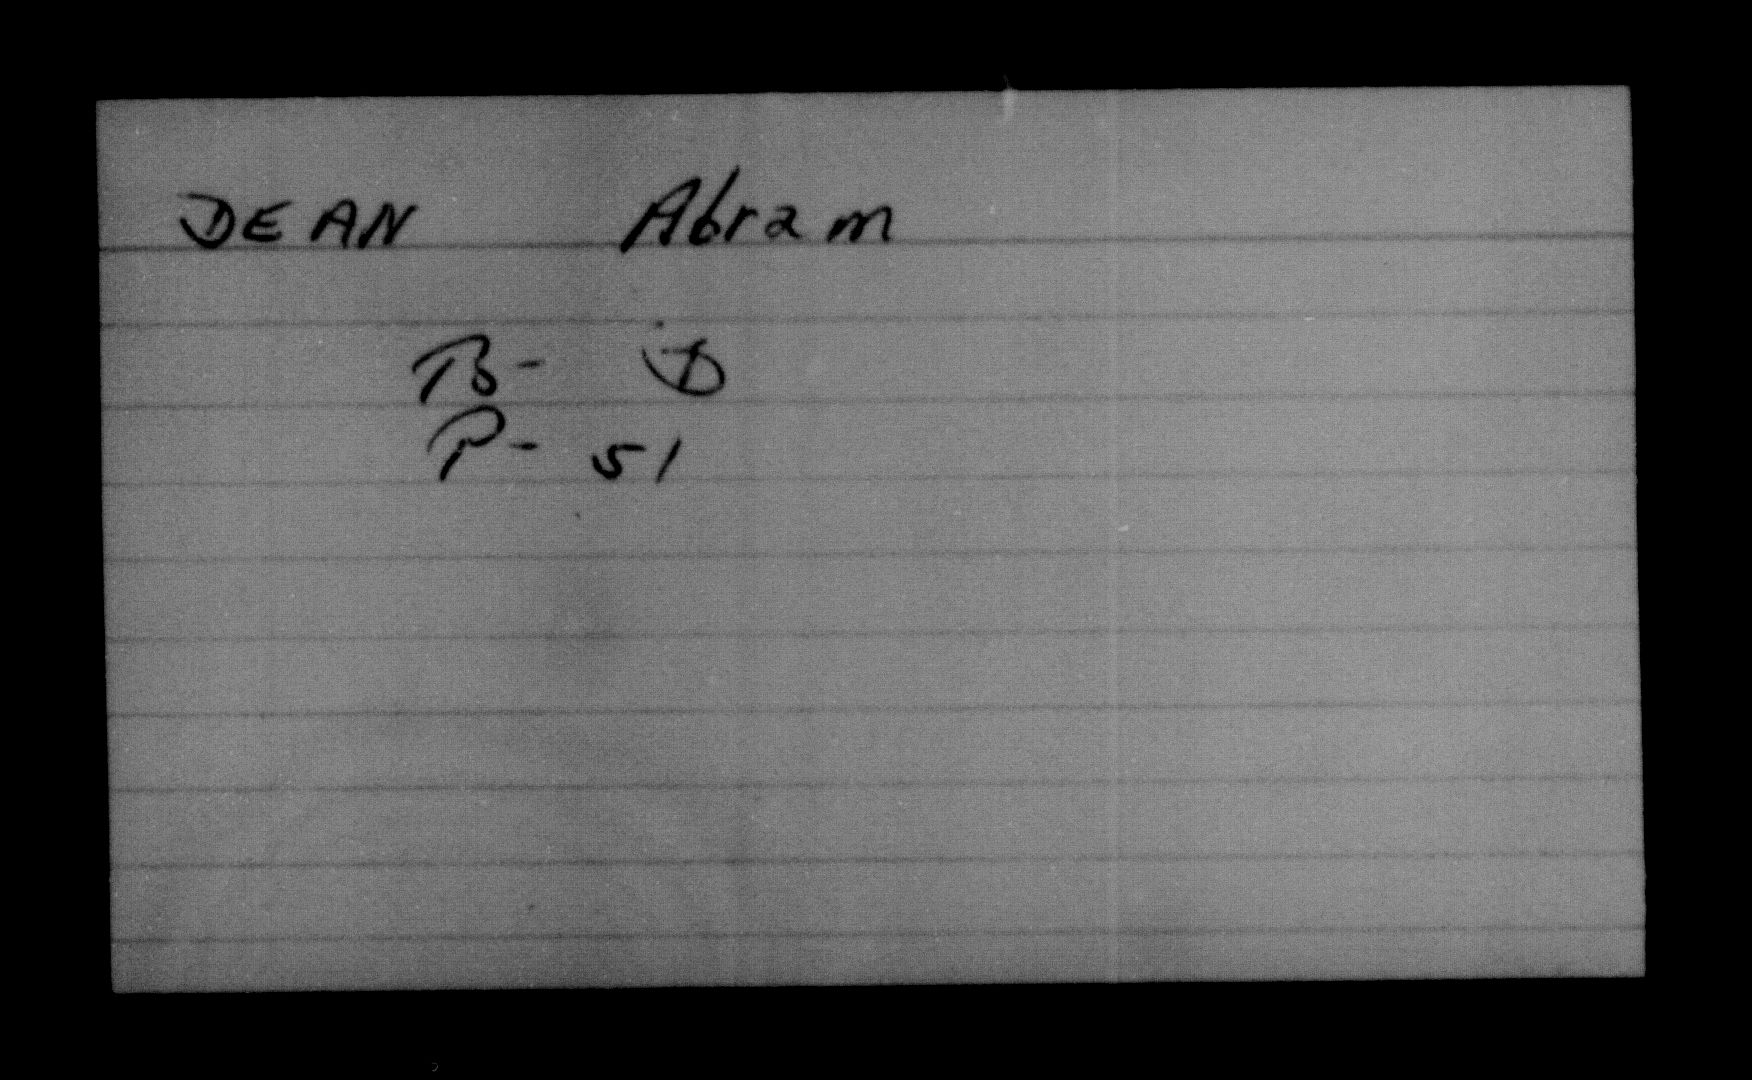 DEAN Abram
B- D
P- 51